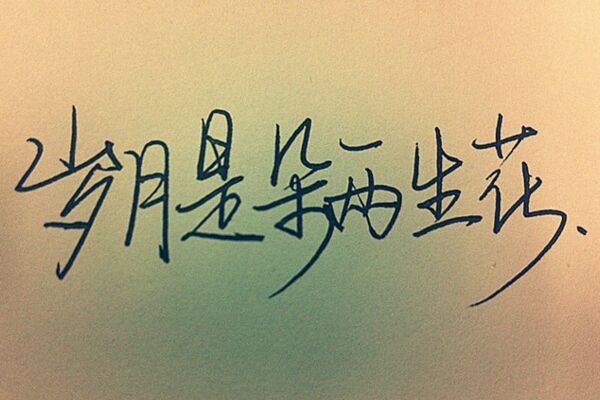 岁月是朵两生花.